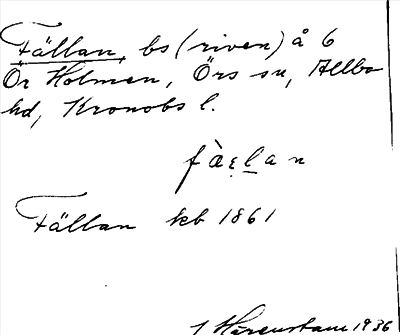 Fällan, bs (riven) å 6
Ör Holmen, Örs sn, Allbo
hd, Kronobs l.
fàɛlan
Fällan kb 1861
1936